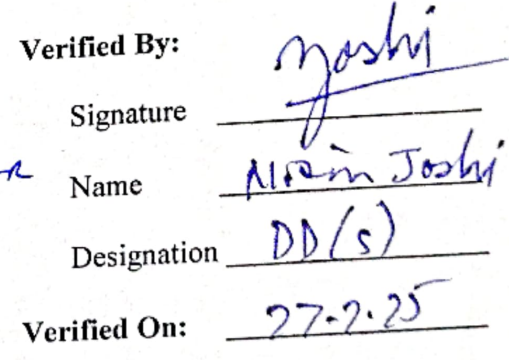 Verified By:
Signature Joshi
Name Joshi
Designation DD(S)
Verified On: